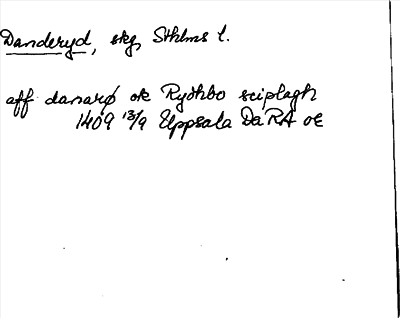 Danderyd, skg, Sthlms l.
aff danarø ok Rydhbo sciplagh
1409 13/9 Uppsala Da RA oc